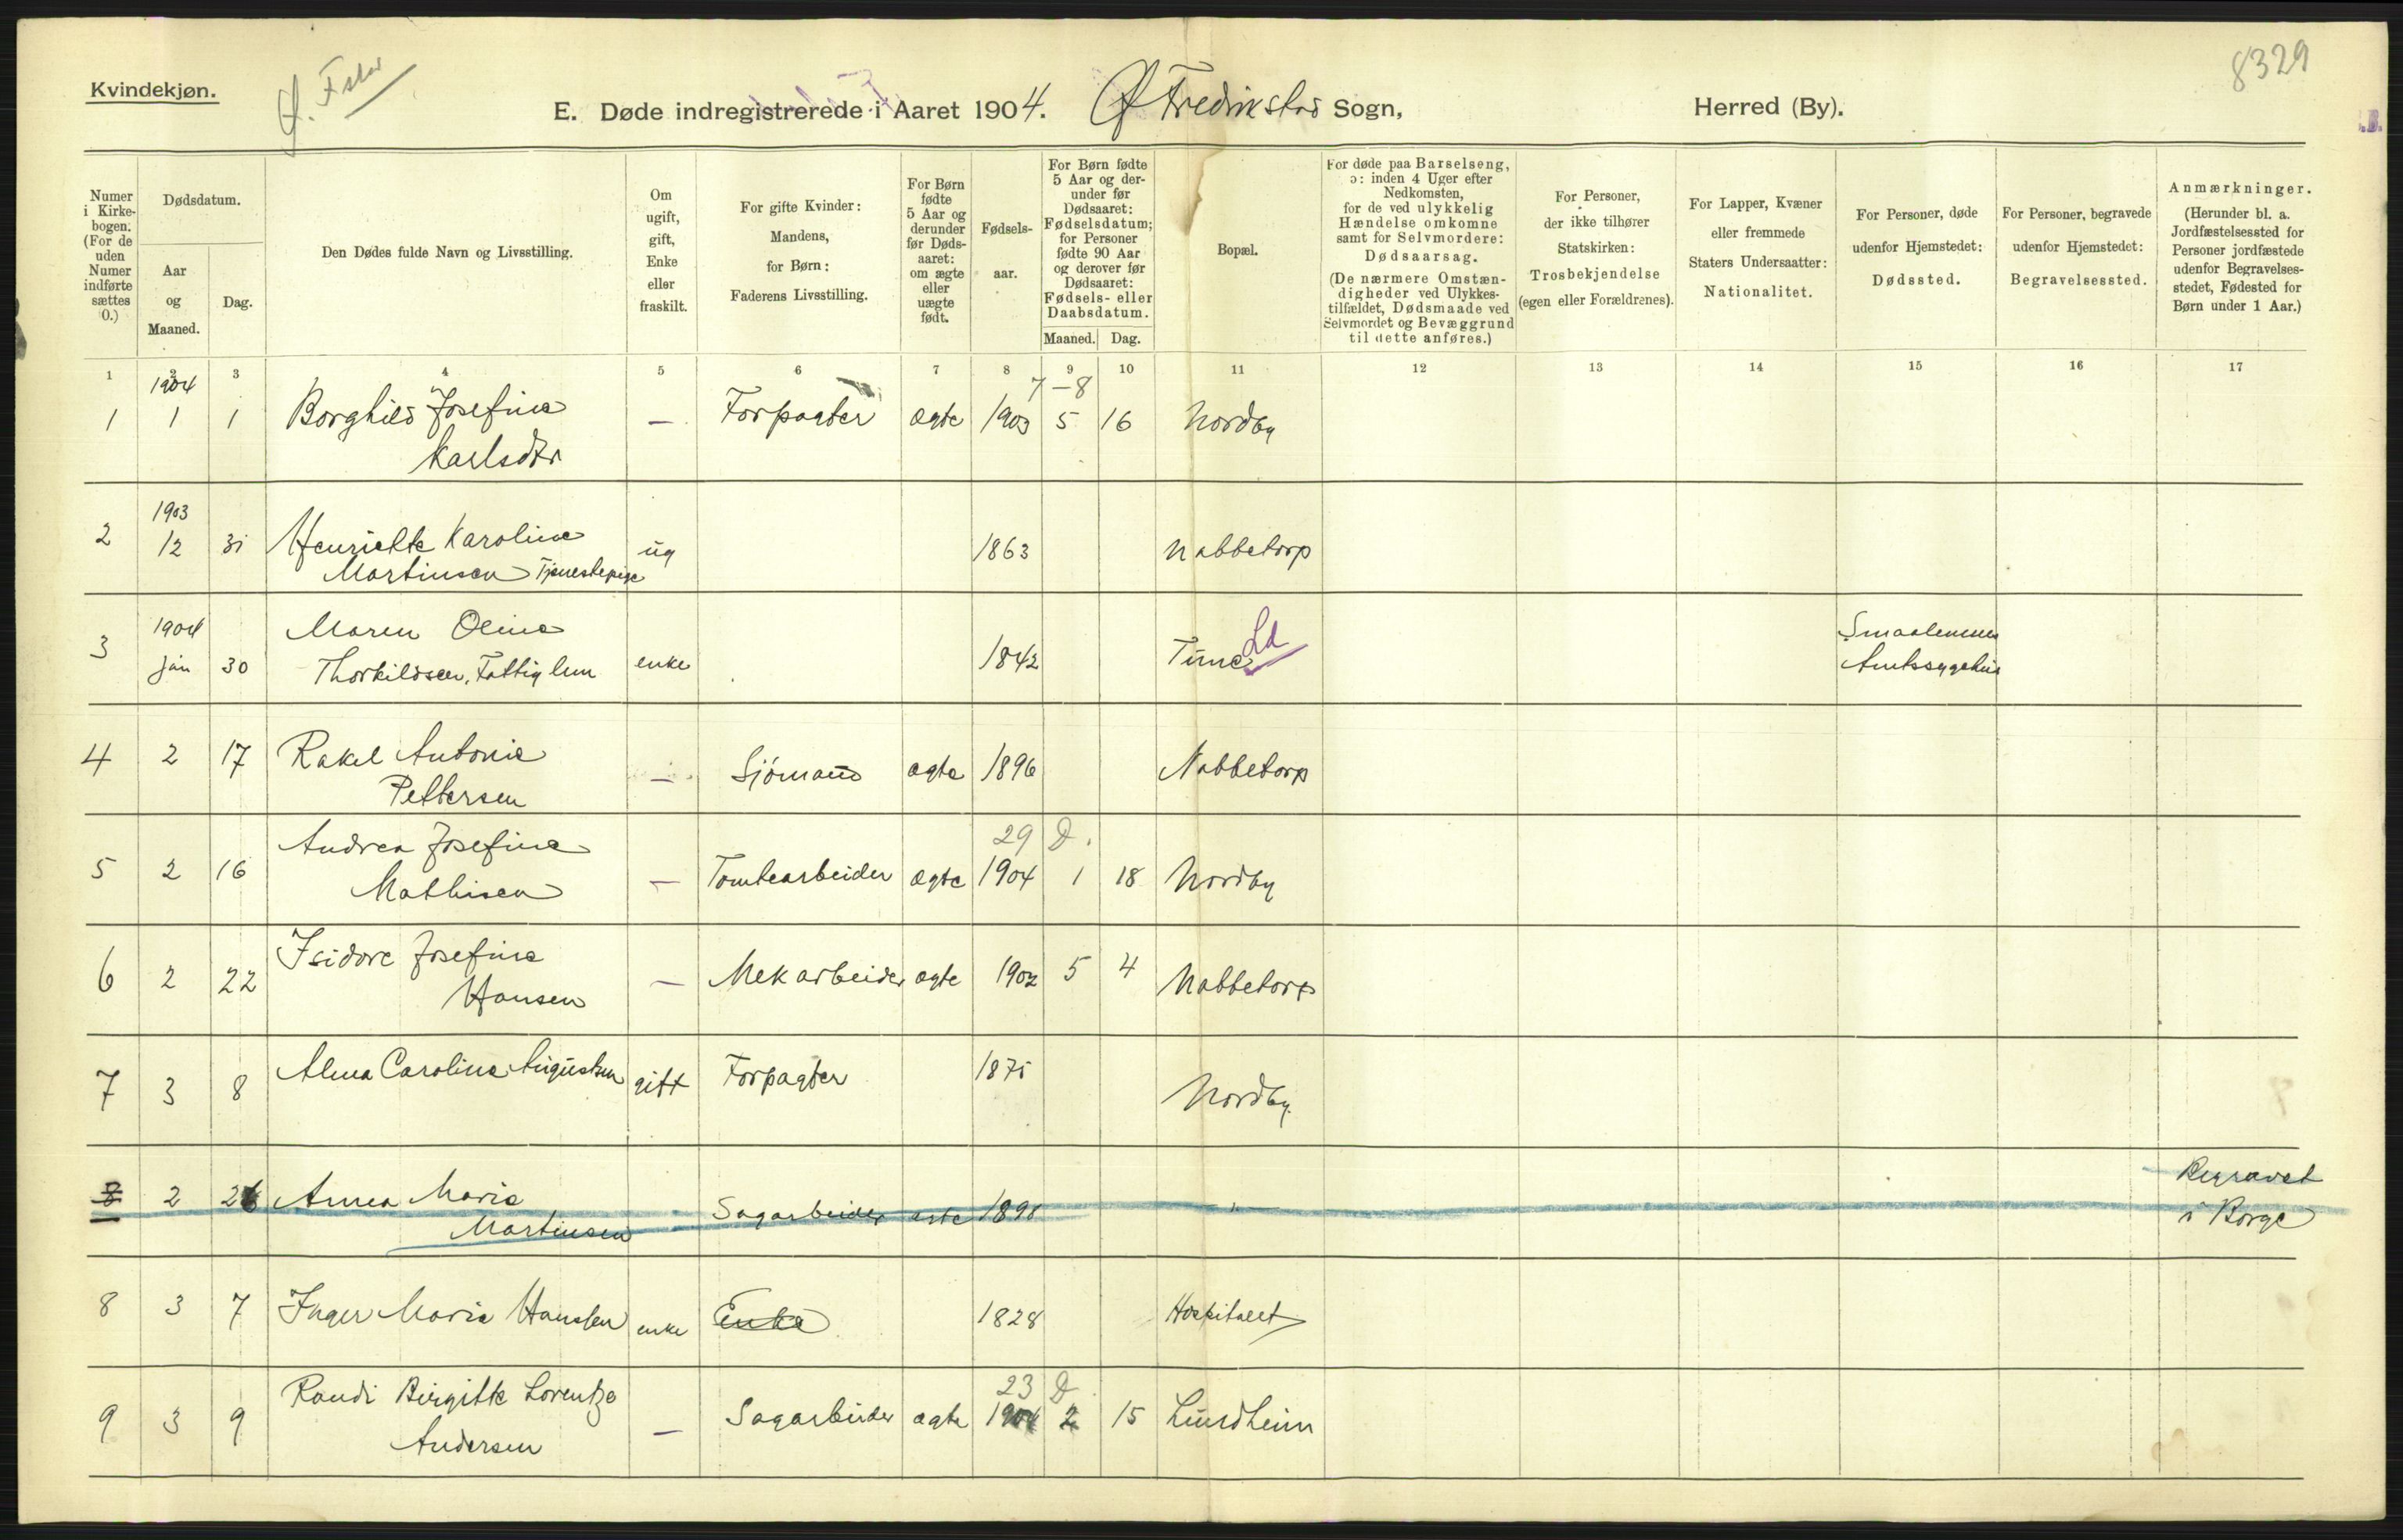 Kvindekjøn.
Ø. Fstad
8329
E. Døde indregistrerede i Aaret 1904. Ø Fredrikstad Sogn, Herred (By).
Numer i Kirkebogen. (For de uden Numer indførte sættes 0.)
Dødsdatum.
Aar og Maaned.
Dag.
Den Dødes fulde Navn og Livsstilling.
Om ugift, gift, Enke eller fraskilt.
For gifte Kvinder: Mandens, for Børn: Faderens Livsstilling.
For Børn fødte 5 Aar og derunder før Dødsaaret: om ægte eller uægte født.
Fødselsaar.
For Børn fødte 5 Aar og derunder før Dødsaaret: Fødselsdatum; for Personer fødte 90 Aar og derover før Dødsaaret: Fødsels- eller Daabsdatum.
Maaned. Dag.
Bopæl.
For døde paa Barselseng, ɔ: inden 4 Uger efter Nedkomsten, for de ved ulykkelig Hændelse omkomne samt for Selvmordere: Dødsaarsag. (De nærmere Omstændigheder ved Ulykkestilfældet, Dødsmaade ved Selvmordet og Bevæggrund til dette anføres.)
For Personer, der ikke tilhører Statskirken: Trosbekjendelse (egen eller Forældrenes).
For Lapper, Kvæner eller fremmede Staters Undersaatter: Nationalitet.
For Personer, døde udenfor Hjemstedet: Dødssted.
For Personer, begravede udenfor Hjemstedet: Begravelsessted.
Anmærkninger. (Herunder bl. a. Jordfæstelsessted for Personer jordfæstede udenfor Begravelsesstedet, Fødested for Børn under 1 Aar.)
1 2 3 4 5 6 7 8 9 10 11 12 13 14 15 16 17
1904 7-8
1 1 1 Borghild Josefine — Forpagter ægte 1903 5 16 Nordby
Karlsdtr
1903
2 12 31 Henriette Karoline ug 1863 Nabbetorp
Martinsen Tjenestepige
1904 Maren Oline Ld Smaalenenes
3 jan 30 Thorkildsen, Fattiglem enke 1842 Tune Amtssygehus
4 2 17 Rakel Antonie — Sjømand ægte 1896 Nabbetorp
Pettersen
Andrea Josefine 29 D.
5 2 16 Mathisen — Tomtearbeider ægte 1904 1 18 Nordby
Isidore Josefine
6 2 22 Hansen — Mekarbeider ægte 1902 5 4 Nabbetorp
7 3 8 Alma Caroline Augustsen gift Forpagter 1875 Nordby.
8 2 26 Anna Marie Sagarbeider ægte 1898 " Begravet
Martinsen i Borge
8 3 7 Inger Marie Hansen enke Enke 1828 Hospitalet
Randi Birgitte Lorentze 23 D.
9 3 9 Andersen — Sagarbeider ægte 1904 2 15 Lundheim